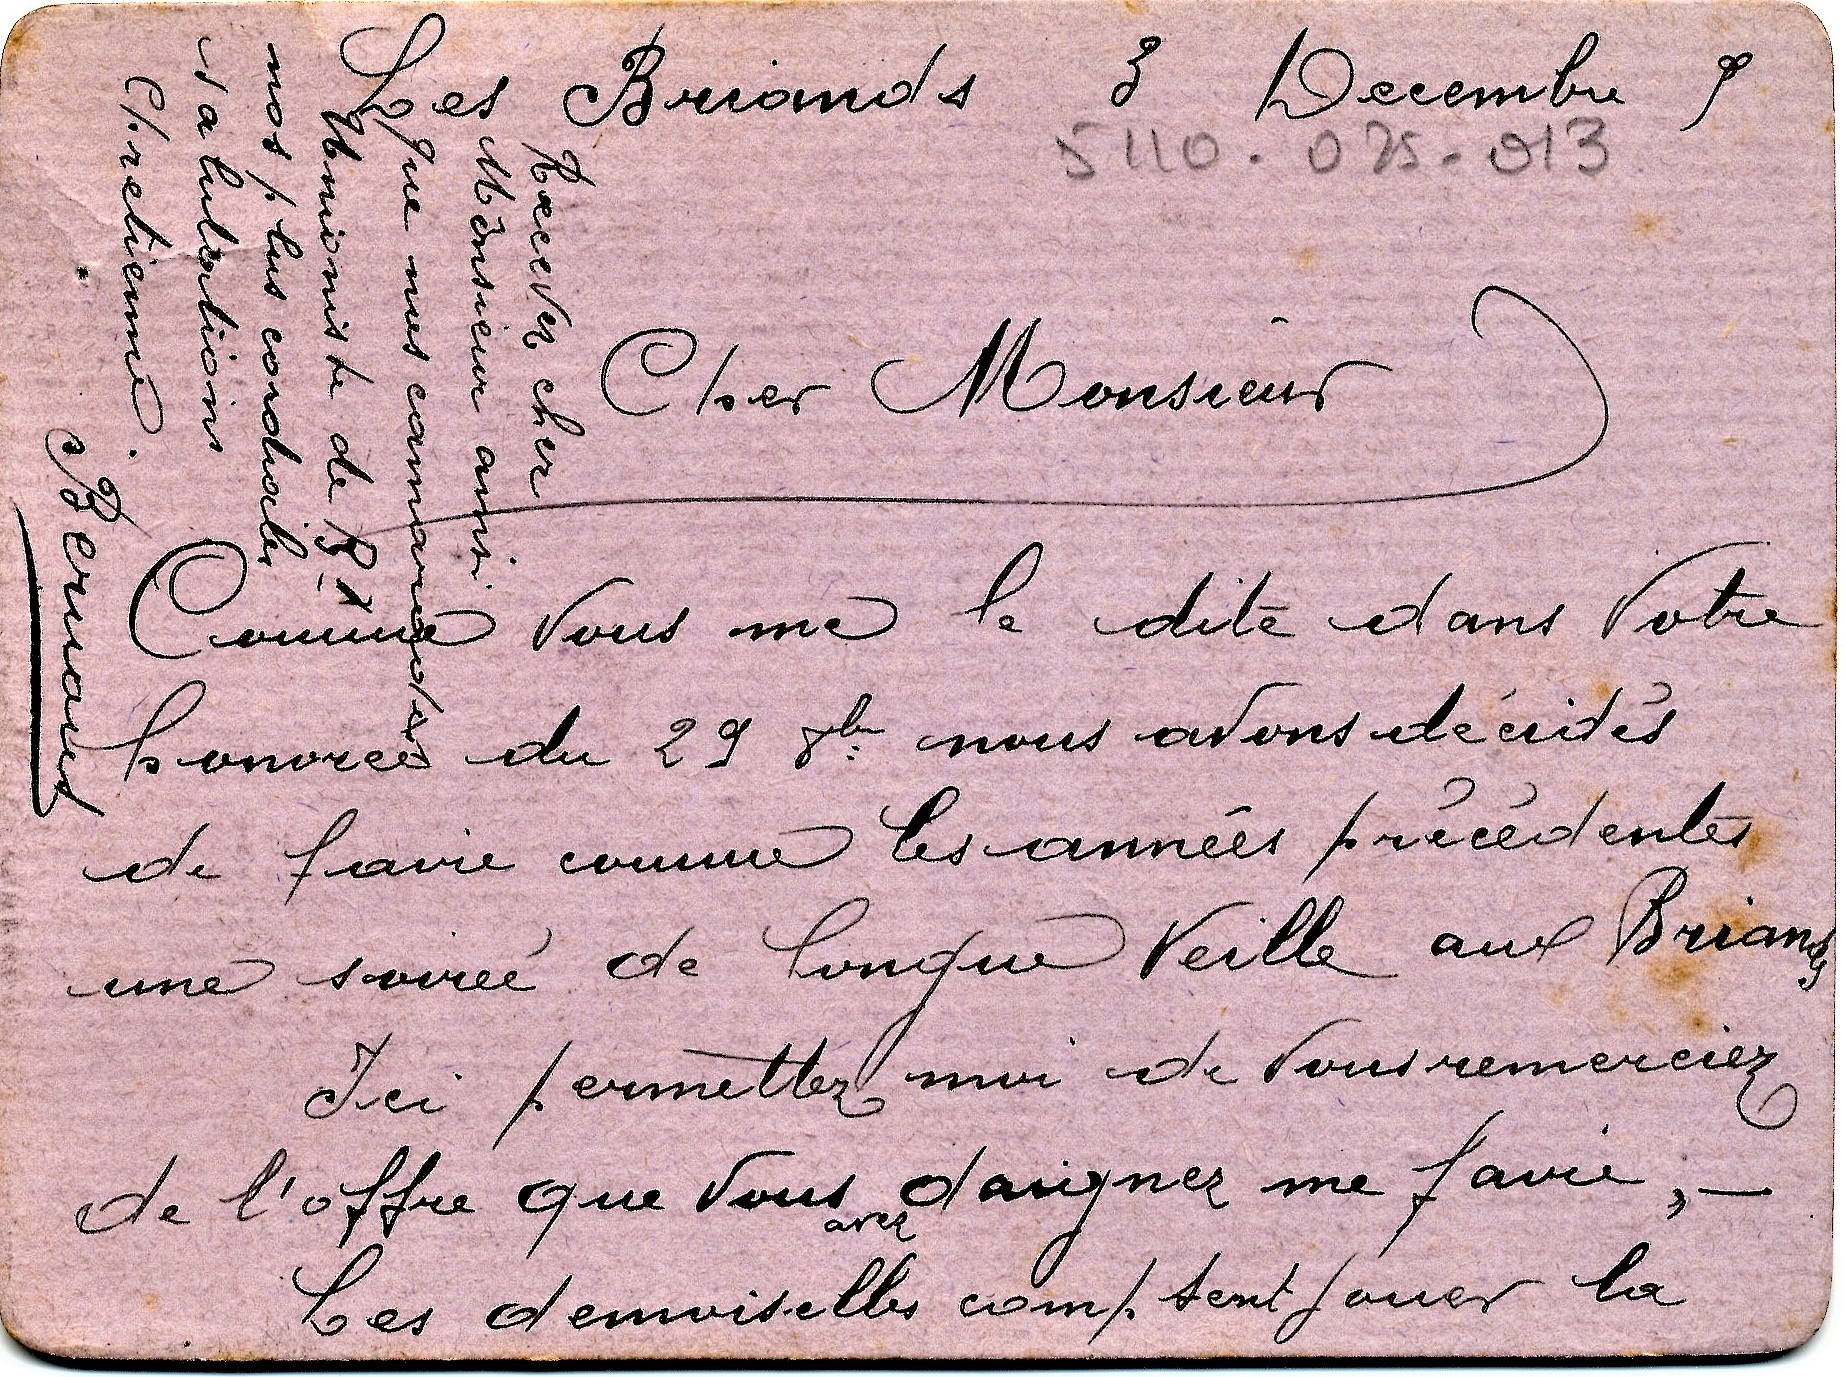 Les Briands 3 Decembre 9
5110. 025. 013
Cher Monsieur
Comme vous me le dite dans votre
honoreé du 29 9bre nous avons décidés
de favie comme les années précédentes
une soireé de longue veille aux Briands
Ici permettez moi de vous remerciez
de l'offre que vous avez daignez me favie, —
Les demoiselles comptent jouer la
Recever cher
Monsieur ainsi
que mes cammarades
Unioniste de Bx
nos plus cordiales
salutations
Chretienne.